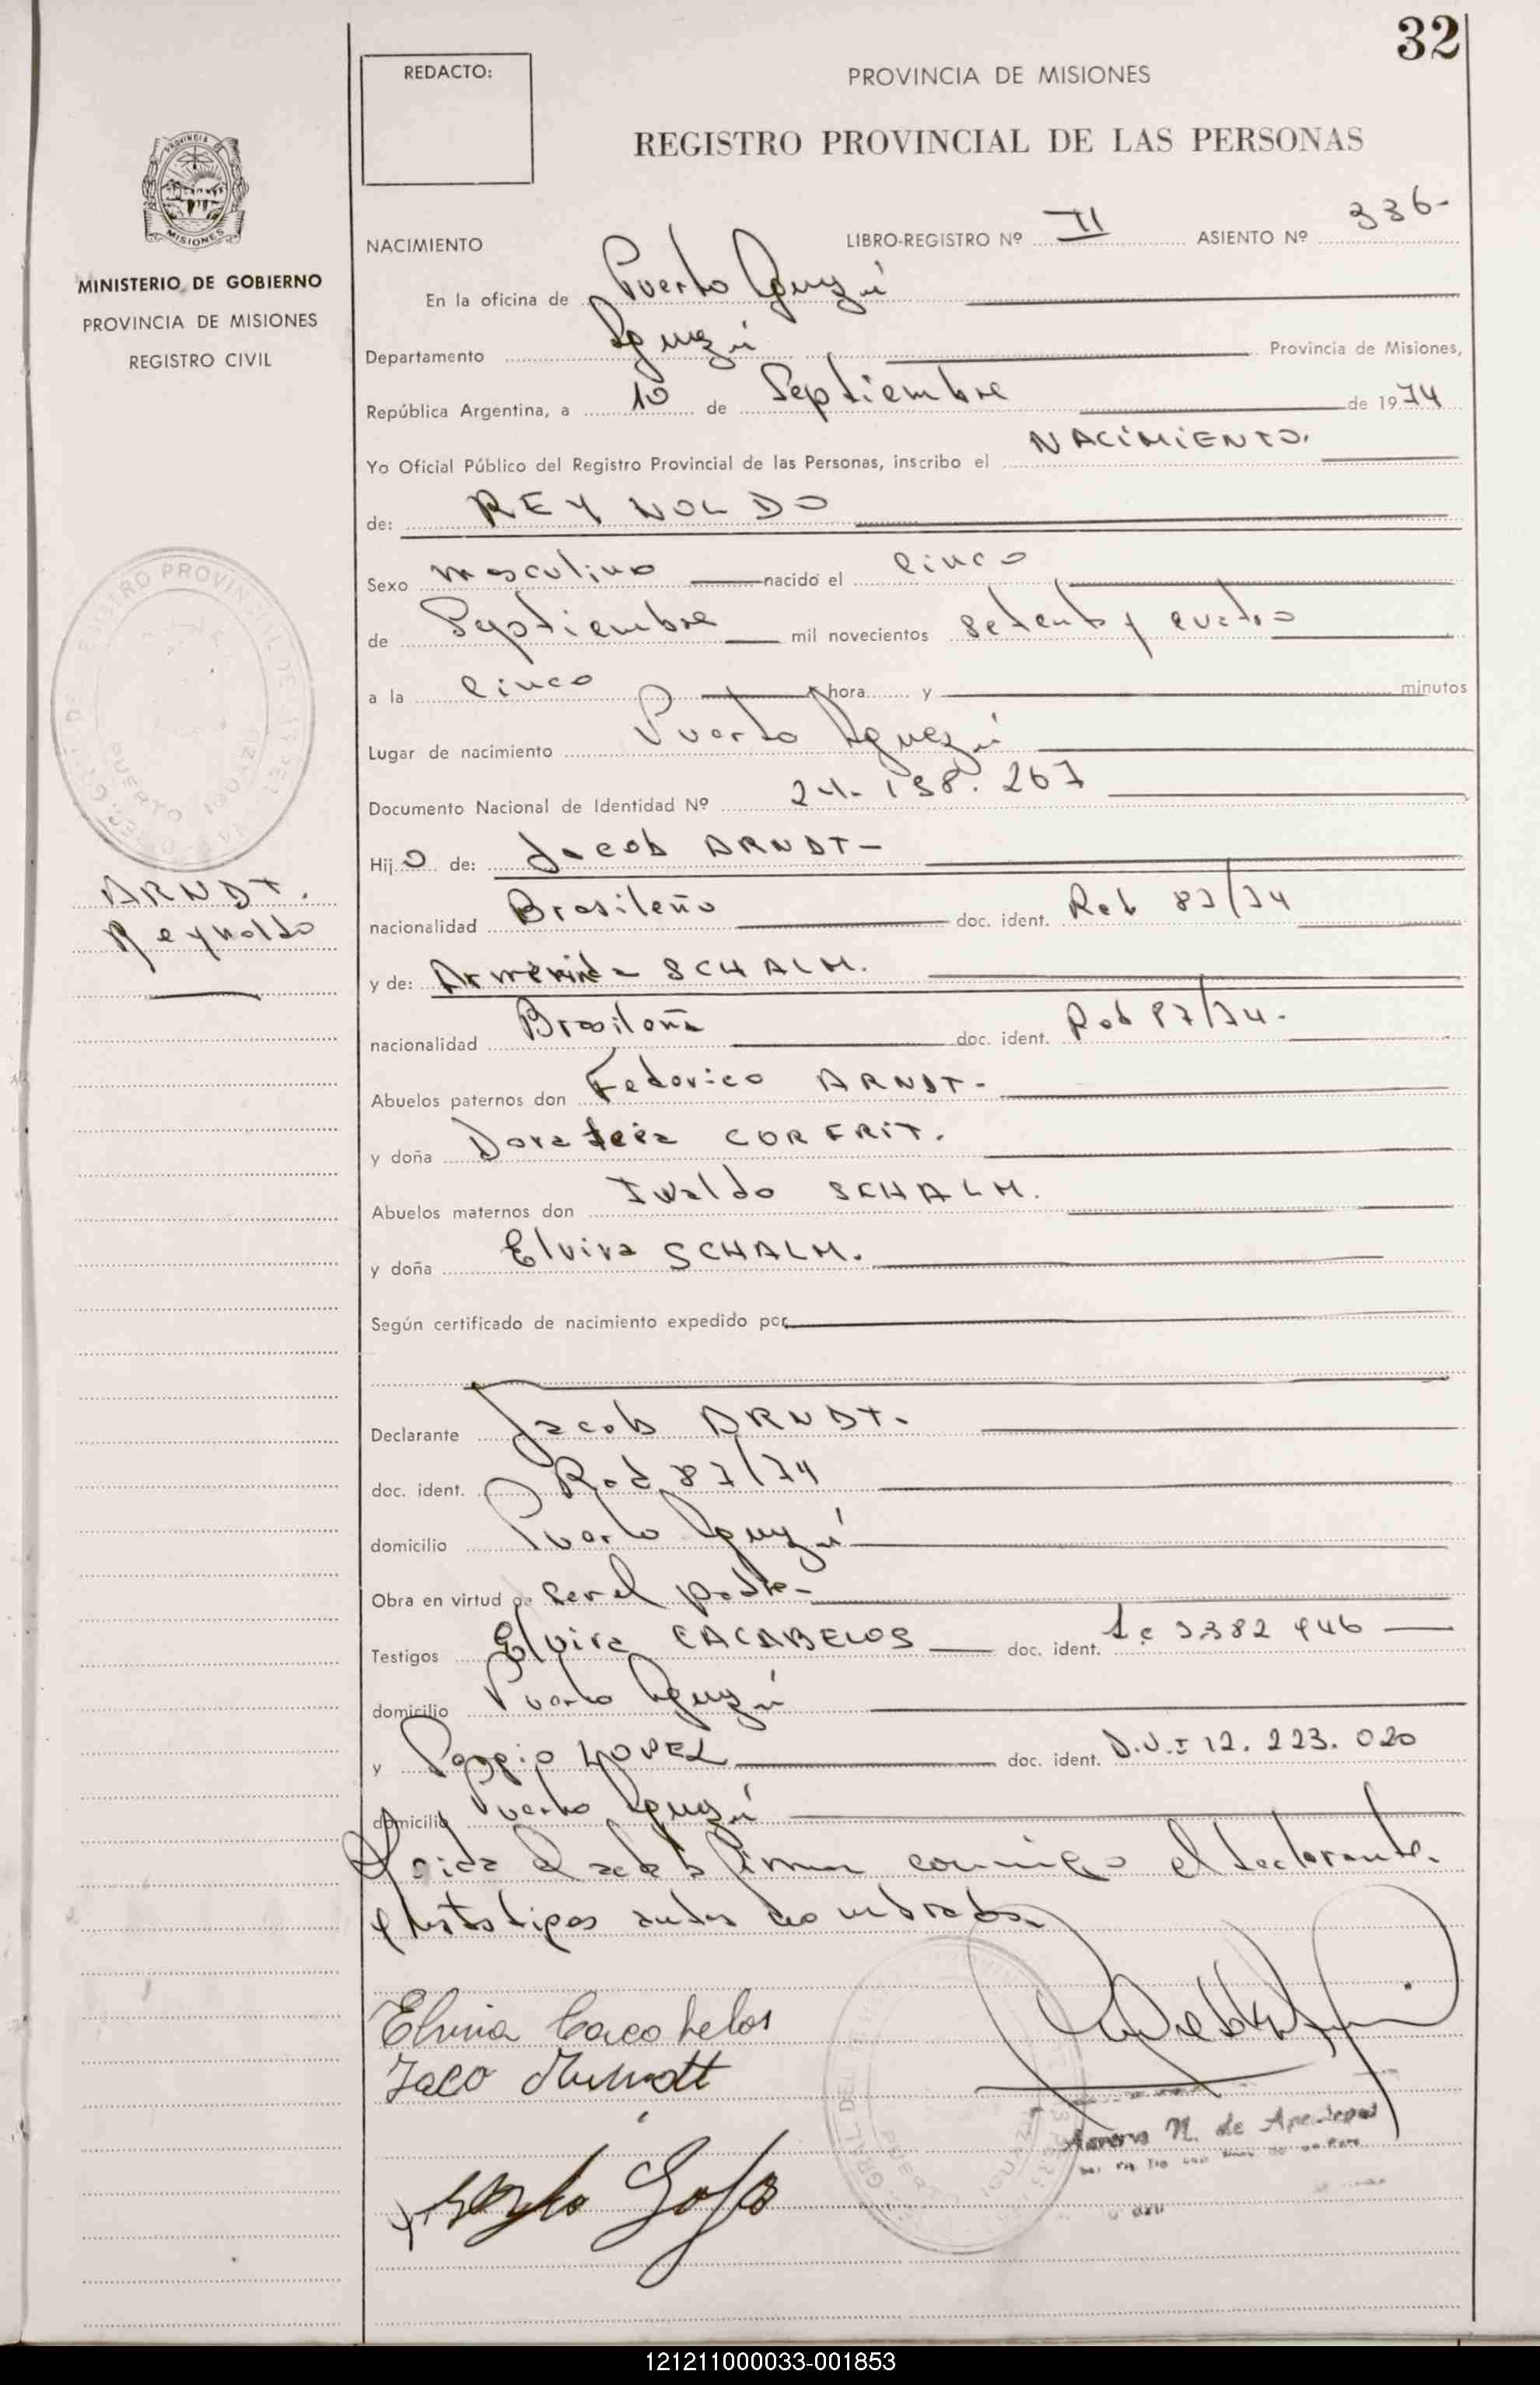 32
REDACTO:
PROVINCIA DE MISIONES
REGISTRO PROVINCIAL DE LAS PERSONAS
MISIONES
MINISTERIO DE GOBIERNO
PROVINCIA DE MISIONES
REGISTRO CIVIL
NACIMIENTO LIBRO-REGISTRO Nº II ASIENTO Nº 336-
En la oficina de Puerto Iguazú
Departamento Iguazú Provincia de Misiones,
República Argentina, a 10 de Septiembre de 1974
Yo Oficial Público del Registro Provincial de las Personas, inscribo el NACIMIENTO.
de: REYNOLDO
Sexo masculino nacido el cinco
de Septiembre mil novecientos setenta y cuatro
a la cinco hora y minutos
Lugar de nacimiento Puerto Iguazú
Documento Nacional de Identidad Nº 24.198.267
Hijo de: Jacob ARNDT-
ARNDT.
Reynoldo
nacionalidad Brasileño doc. ident. 87/74
y de: SCHALM.
nacionalidad Brasileña doc. ident. 87/74.
Abuelos paternos don Federico ARNDT-
y doña CORFRIT.
Abuelos maternos don Ivaldo SCHALM.
y doña Elvira SCHALM.
Según certificado de nacimiento expedido por
Declarante Jacob ARNDT.
doc. ident. 87/74
domicilio Puerto Iguazú
Obra en virtud de ser el padre-
Testigos Elvira CACABELOS doc. ident.
domicilio Puerto Iguazú
y LOPEZ doc. ident. D.N.I 12.223.020
domicilio Puerto Iguazú
Leida el acta la firman conmigo el declarante
y los testigos antes nombrados
Elvira Cacabelos